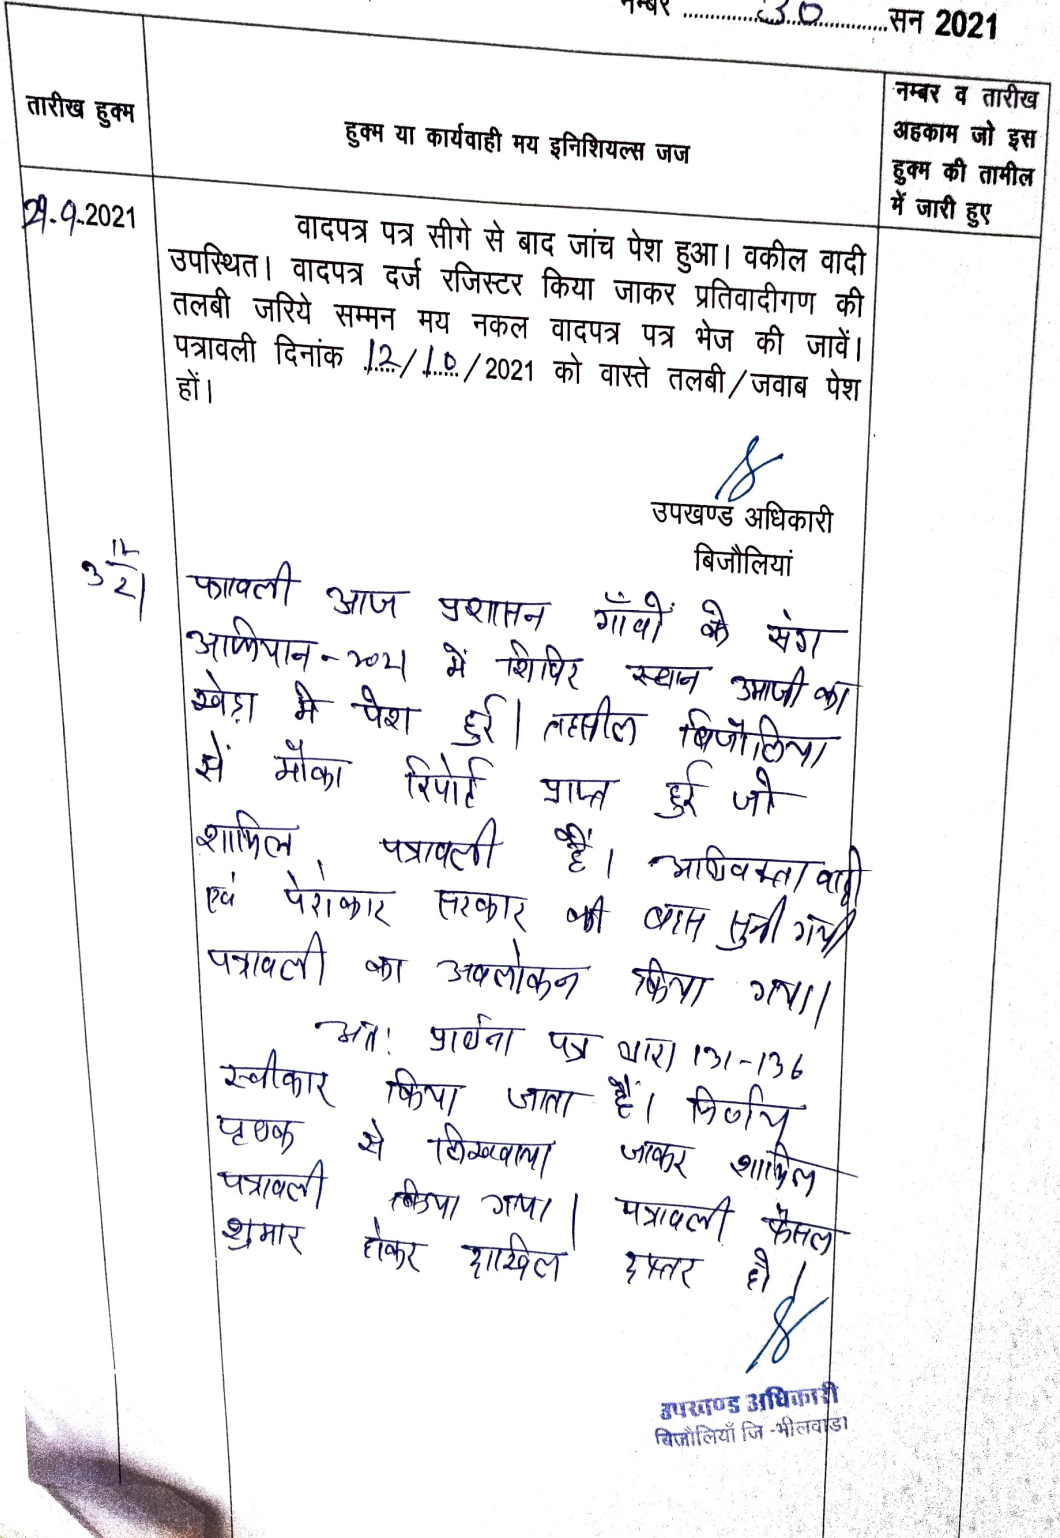 नम्बर ..............30...............सन 2021
तारीख हुक्म
हुक्म या कार्यवाही मय इनिशियल्स जज
नम्बर व तारीख
अहकाम जो इस
हुक्म की तामील
में जारी हुए
29.9.2021
वादपत्र पत्र सीगे से बाद जांच पेश हुआ। वकील वादी
उपस्थित। वादपत्र दर्ज रजिस्टर किया जाकर प्रतिवादीगण की
तलबी जरिये सम्मन मय नकल वादपत्र पत्र भेज की जावें।
पत्रावली दिनांक 12/10/2021 को वास्ते तलबी/जवाब पेश
हों।
उपखण्ड अधिकारी
बिजौलियां
3 12/21
पत्रावली आज प्रशासन गाँवों के संग
अभियान-2021 में शिविर स्थान उमाजी का
खेड़ा मे पेश हुई। तहसील बिजौलिया
से मौका रिपोर्ट प्राप्त हुई जो
शामिल पत्रावली हैं। अधिवक्ता वादी
एवं पेरोकार सरकार की बहस सुनी गयी
पत्रावली का अवलोकन किया गया।
अतः प्रार्थना पत्र धारा 131-136
स्वीकार किया जाता हैं। निर्णय
पृथक से लिखवाया जाकर शामिल
पत्रावली किया गया। पत्रावली फैसल
शुमार होकर दाखिल दफ्तर हो।
उपखण्ड अधिकारी
बिजौलियाँ जि -भीलवाड़ा